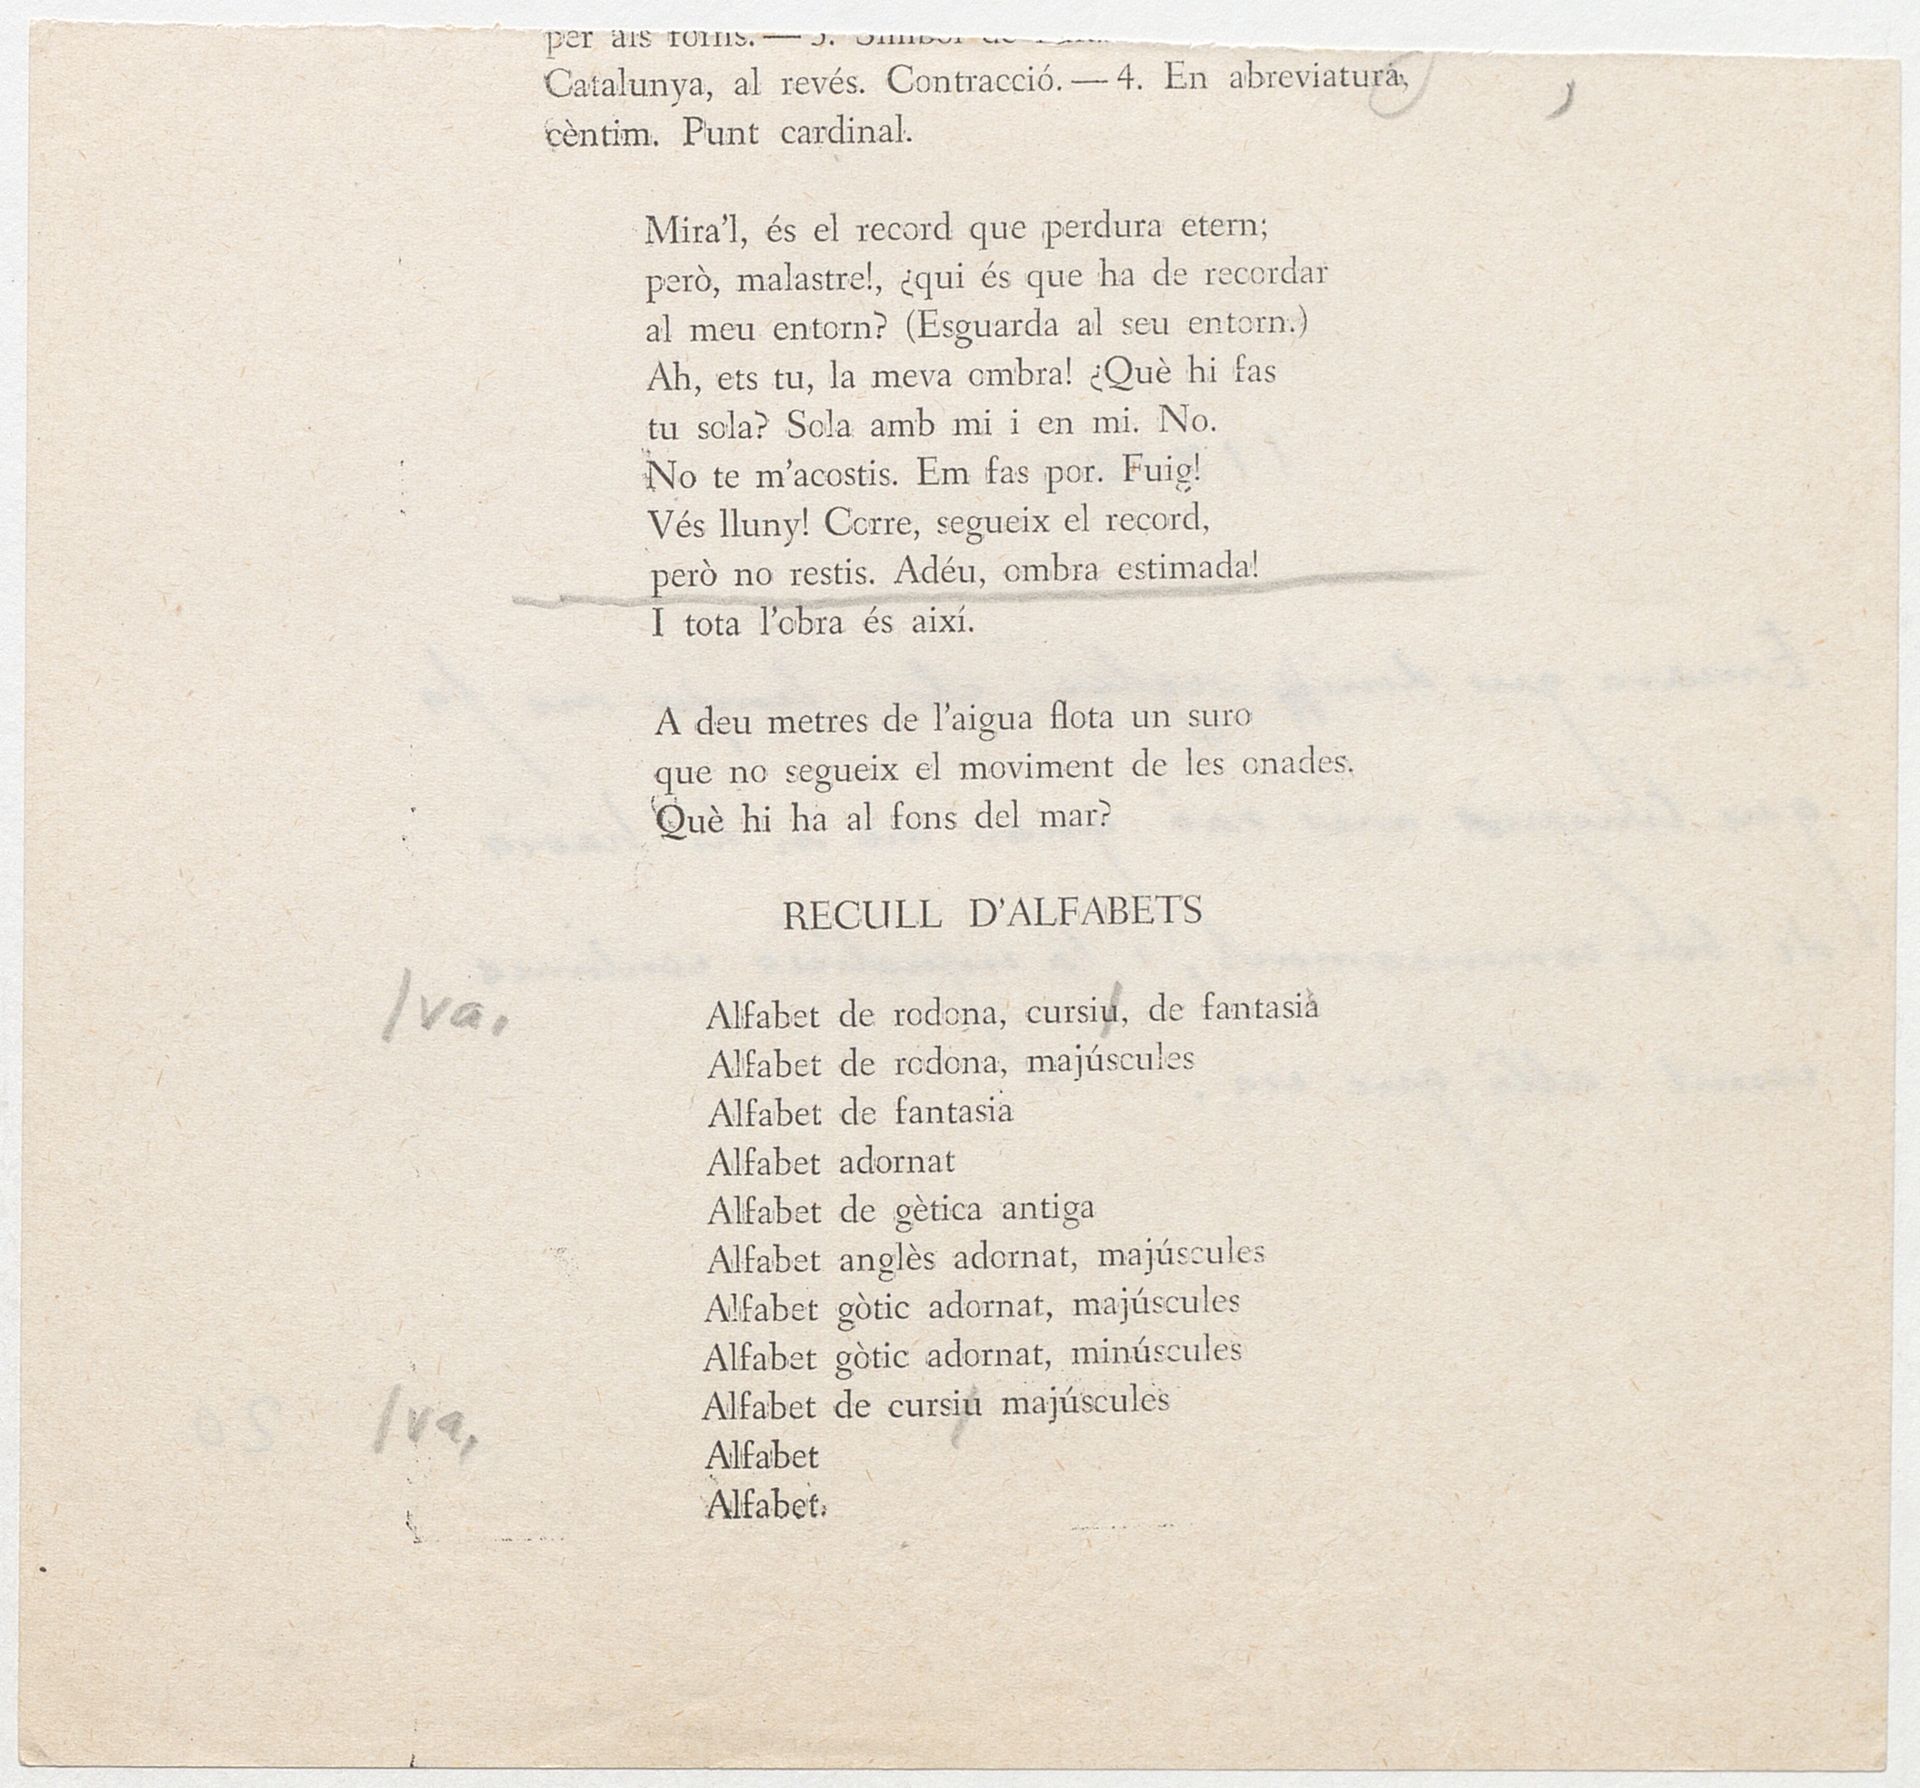 per als forns. — 3.
Catalunya, al revés. Contracció. — 4. En abreviatura,
cèntim. Punt cardinal.
Mira'l, és el record que perdura etern;
però, malastre!, ¿qui és que ha de recordar
al meu entorn? (Esguarda al seu entorn.)
Ah, ets tu, la meva ombra! ¿Què hi fas
tu sola? Sola amb mi i en mi. No.
No te m'acostis. Em fas por. Fuig!
Vés lluny! Corre, segueix el record,
però no restis. Adéu, ombra estimada!
I tota l'obra és així.
A deu metres de l'aigua flota un suro
que no segueix el moviment de les onades.
Què hi ha al fons del mar?
RECULL D'ALFABETS
/va,
Alfabet de rodona, cursiu, de fantasia
Alfabet de rodona, majúscules
Alfabet de fantasia
Alfabet adornat
Alfabet de gètica antiga
Alfabet anglès adornat, majúscules
Alfabet gòtic adornat, majúscules
Alfabet gòtic adornat, minúscules
/va,
Alfabet de cursiu majúscules
Alfabet
Alfabet.